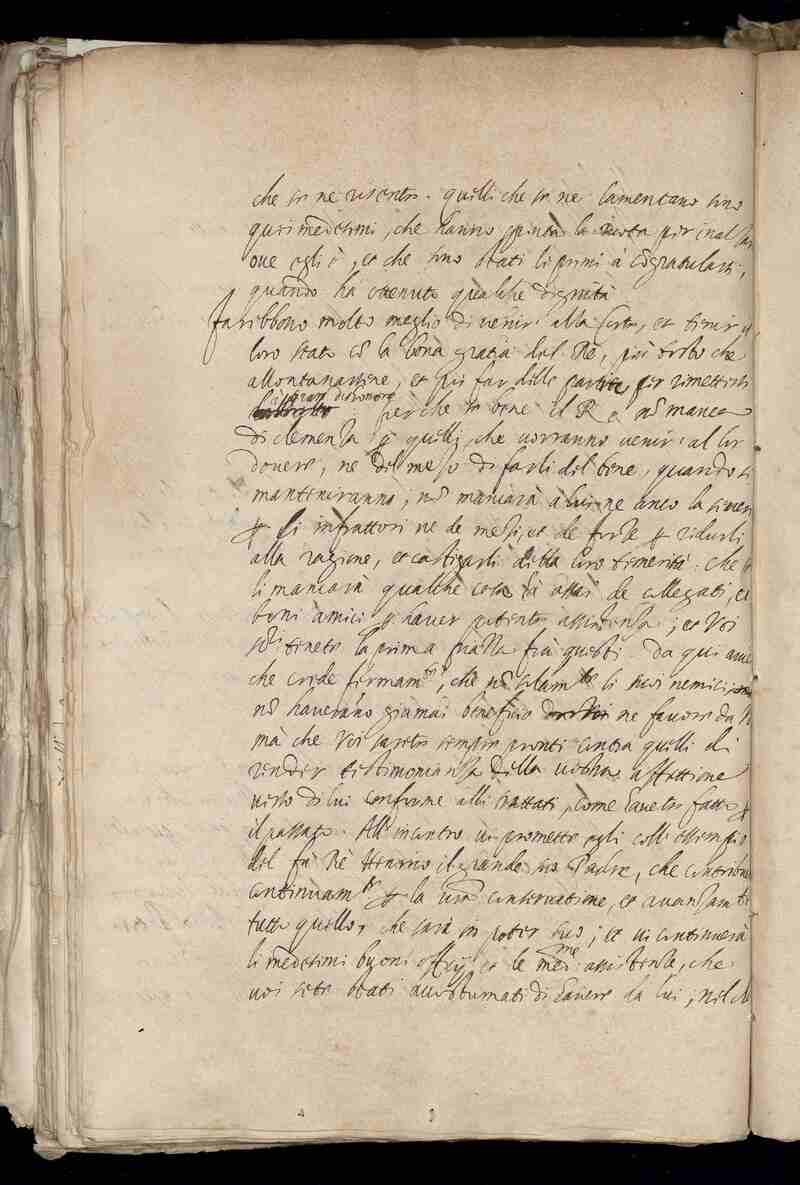 che se ne risentono. quelli che se ne lamentano sono
quei medesimi, che hanno spinta la ruota per inal
oue egli è, et che sono stati li primi à cõgratularsi,
quando ha ottenuto qualche dignità
Farebbono molto meglio di venir alla Corte, et tener
loro stato cõ la bona gratia del Rè, più tosto che
allontanarsene, et poi far delle partite per rimettersi
perche se bene il Rè nõ manca
di clemenza p quelli, che vorranno venir al lor
douere, ne del mezo di farli del bene, quando si
manteniranno, nõ mancarà à lui ne anco la
p li infrattori ne de mezi, et de forze p ridurli
alla ragione, et castigarli della loro temerità: che
li mancarà qualche cosa hà assai de collegati, et
boni amici p hauer potente assistenza; et Voi
tenete la prima piazza frà questi. Da qui
che crede fermamte, che nõ solamte li suoi nemici
nõ haveranno giamai beneficio ne fauore da
mà che Voi sarete sempre pronti contra quelli di
render testimonianza della vostra affettione
verso di lui conforme alli trattati, come hauete fatto p
il passato. All' incontro vi promette egli coll' essempio
del fù Rè Henrico il grande suo Padre, che
continuamte p la vra conservatione, et auanzamto
tutto quello, che sarà in poter suo; et vi continuerà
li medesimi buoni officij, et le medme assistenze, che
voi sete stati accostumati di hauere da lui; nel